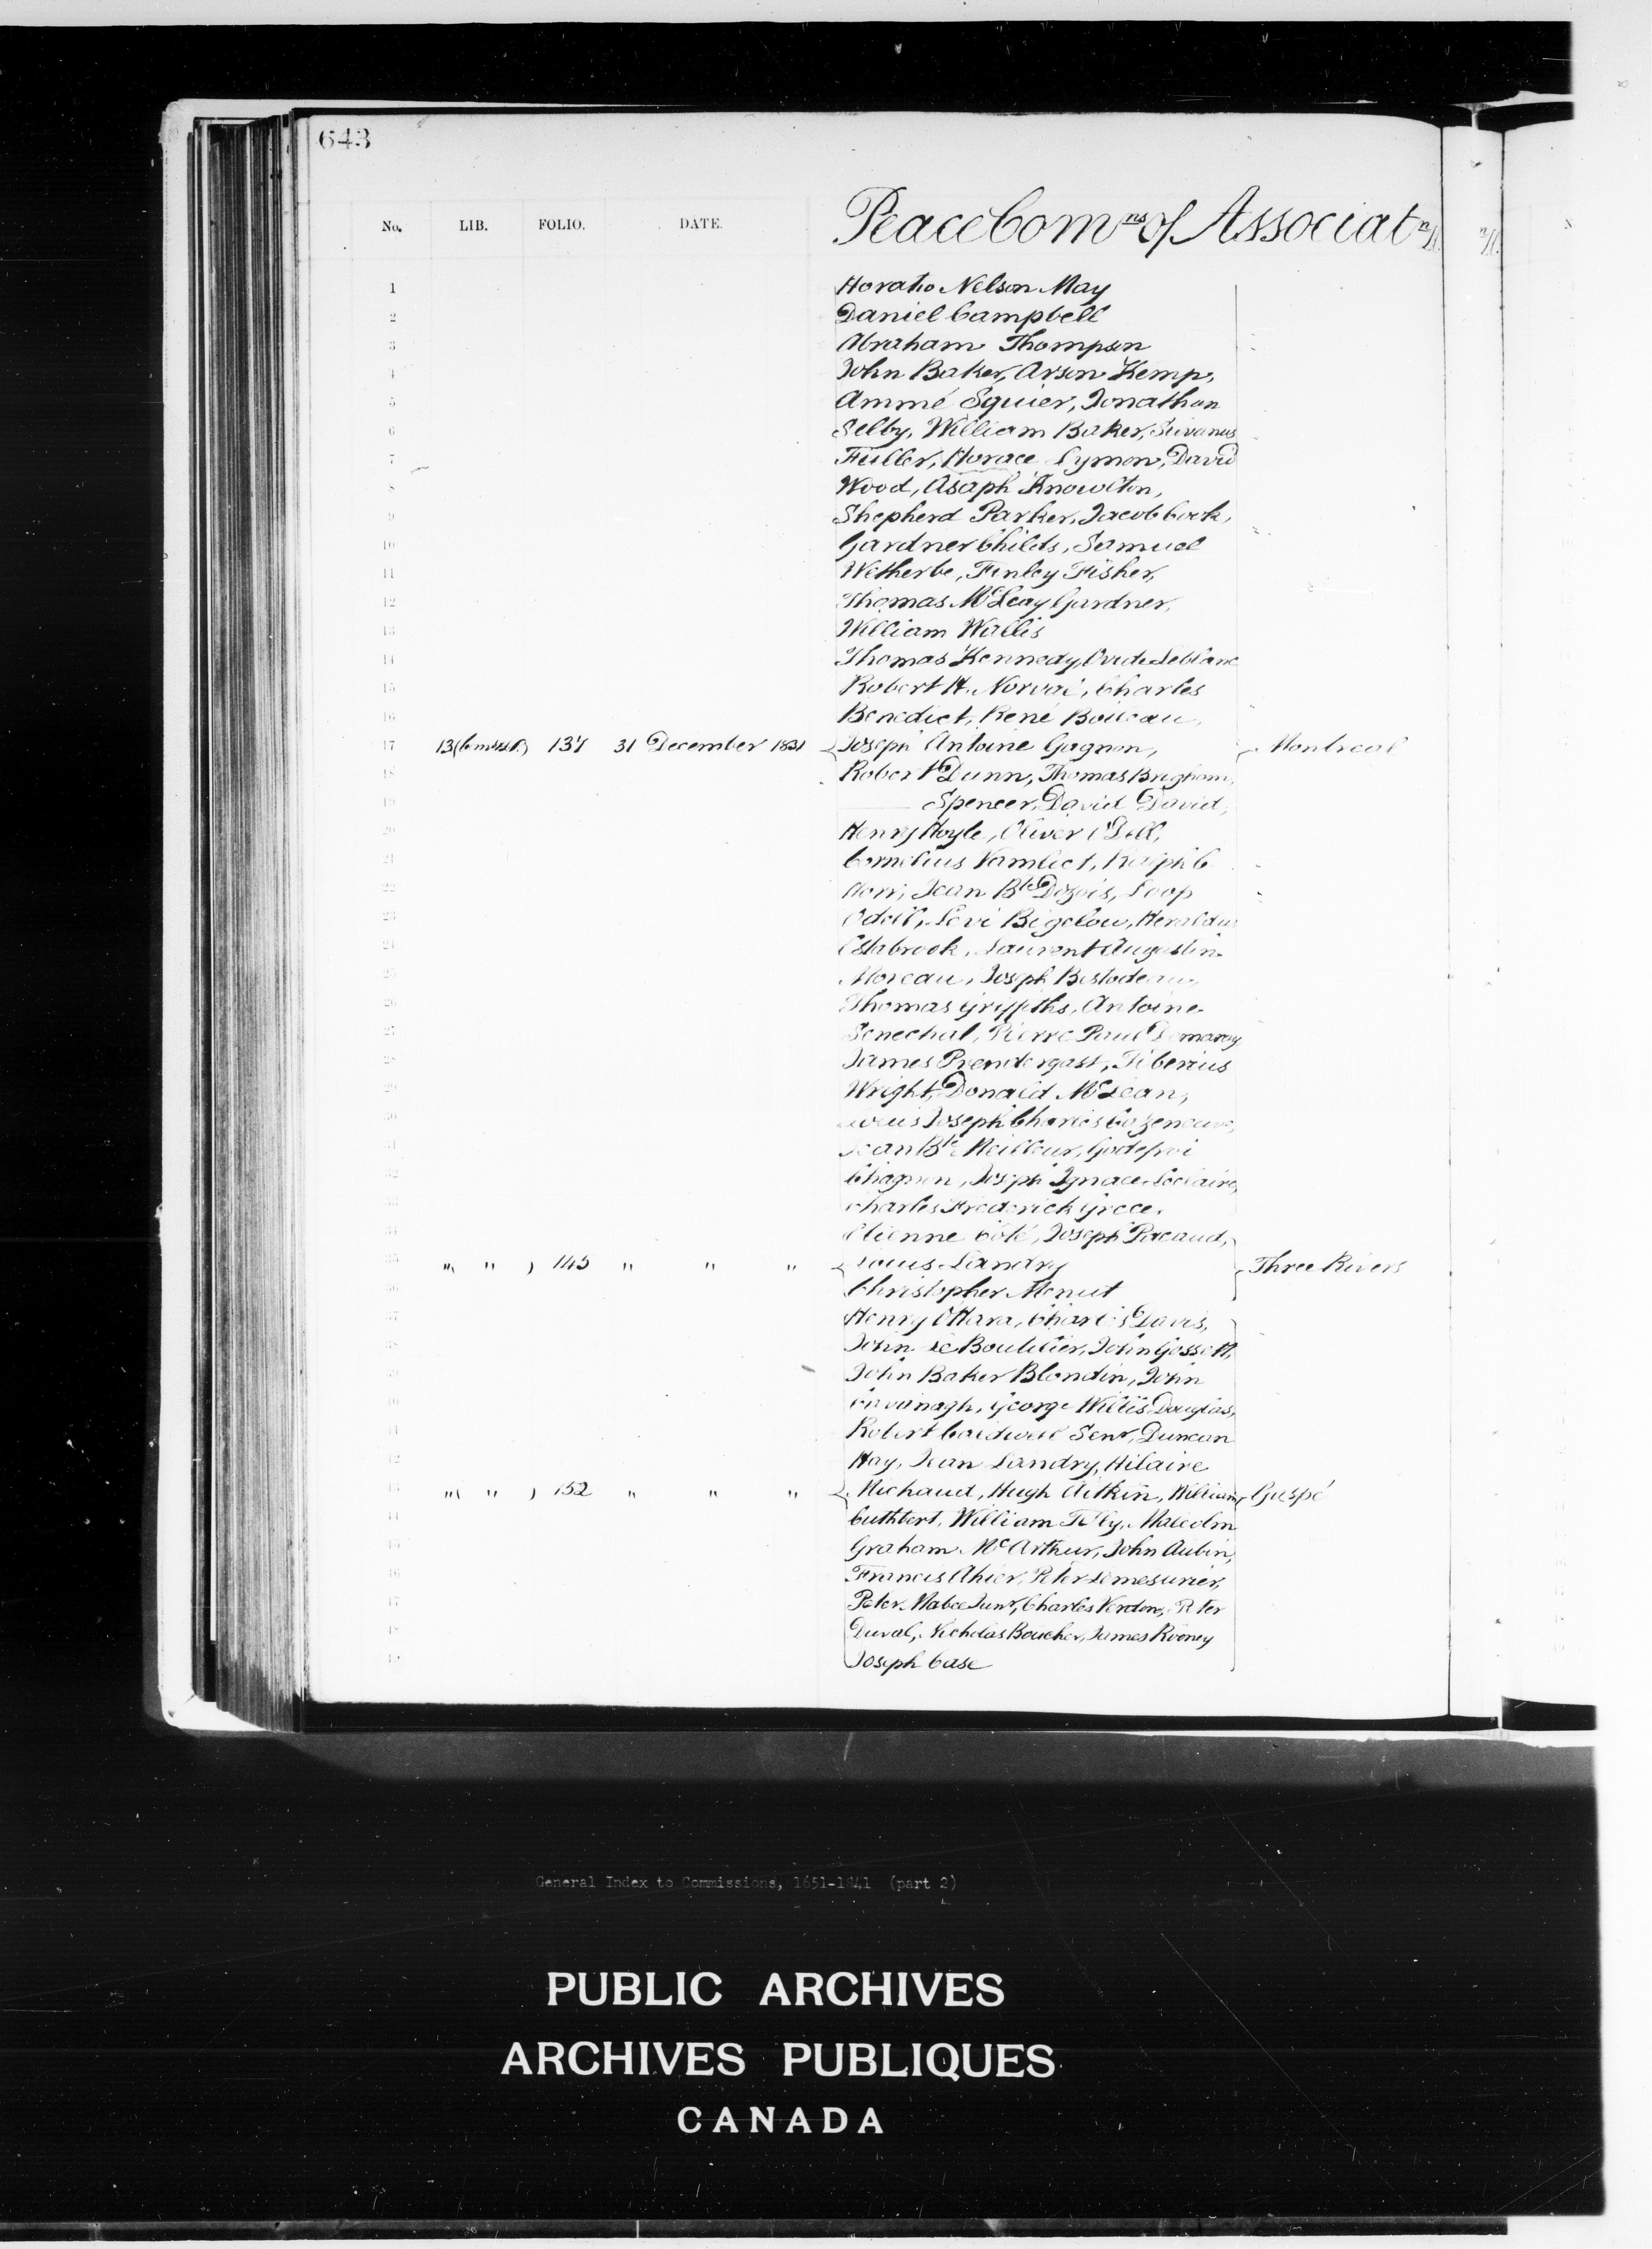 643
No. LIB. FOLIO. DATE. Peace Comns of Associatn
1 Horatio Nelson May
2 Daniel Campbell
3 Abraham Thompson
4 John Baker, Arson Kemp,
5 Ammé Squier, Jonathan
6 Selby, William Baker,
7 Fuller, Horace Lymon, David
8 Wood, Asaph Knowlton,
9 Shepherd Parker, Jacob Cook,
10 Gardner Childs, Samuel
11 Wetherbe, Finley Fisher,
12 Thomas McLeay Gardner,
13 William Wallis
14 Thomas Kennedy, Ovide Leblanc
15 Robert H. Norval, Charles
16 Benedict, René Boileau,
17 13 137 31 December 1831 Joseph Antoine Gagnon, Montreal
18 Robert Dunn, Thomas Brigham,
19 Spencer, David David,
20 Henry Hoyle, Oliver
21 Cornelius Vamliet, Ralph C
22 Jean Bte Dozois, Loop
23 Odell, Levi Bigelow,
24 Estabrook, Laurent Augustin
25 Moreau, Joseph Bistodeau
26 Thomas Griffiths, Antoine
27 Senechal, Pierre Paul Demaray
28 James Prendergast, Tiberius
29 Wright, Donald McLean,
30 Louis Joseph Charles Cazeneuve,
31 Jean Bte Meilleur, Godefroi
32 Chagnon, Joseph Ignace Leclaire,
33 Charles Frederick Grece.
34 Etienne Coté, Joseph Pacaud,
35 " " 145 " " " Louis Landry Three Rivers
36 Christopher Menut
37 Henry O'Hara, Charles Davis,
38 John Le Boutillier, John Gossett,
39 John Baker Blondin, John
40 Cavanagh, George Willis Douglas,
41 Robert Caldwell Senr, Duncan
42 Hay, Jean Landry, Hilaire
43 " " 152 " " " Michaud, Hugh Aitkin, William Gaspé
44 Cuthbert, William Tilly, Malcolm
45 Graham McArthur, John Aubin,
46 Francis Ahier, Peter Lemesurier,
47 Peter Mabee Junr, Charles Verdon, Peter
48 Duval, Nicholas Boucher, James Rooney
49 Joseph Case
General Index to Commissions, 1651-1841 (part 2)
PUBLIC ARCHIVES
ARCHIVES PUBLIQUES
CANADA